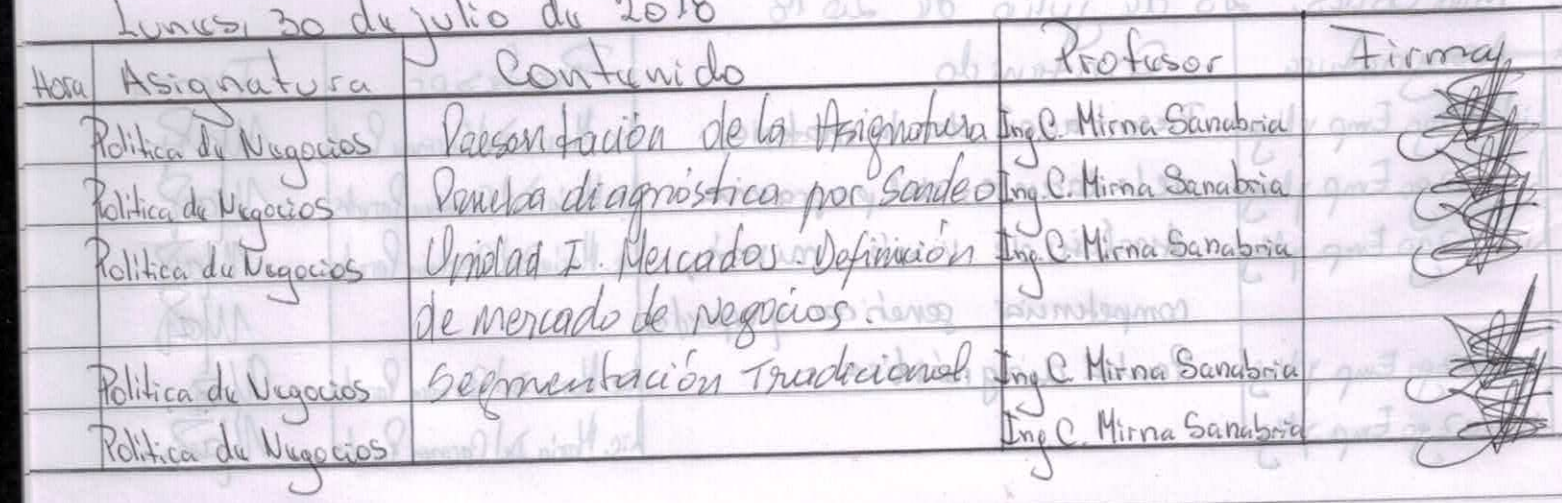 Lunes, 30 de julio de 2018
Hora Asignatura Contenido Profesor Firma
Politica de Negocios Presentación de la Asignatura Ing C. Mirna Sanabria
Politica de Negocios Prueba diagnóstica por Sondeo Ing. C. Mirna Sanabria
Politica de Negocios Unidad I. Mercados Definición Ing C. Mirna Sanabria
de mercado de Negocios.
Politica de Negocios Segmentación Tradicional Ing C. Mirna Sanabria
Politica de Negocios Ing C. Mirna Sanabria